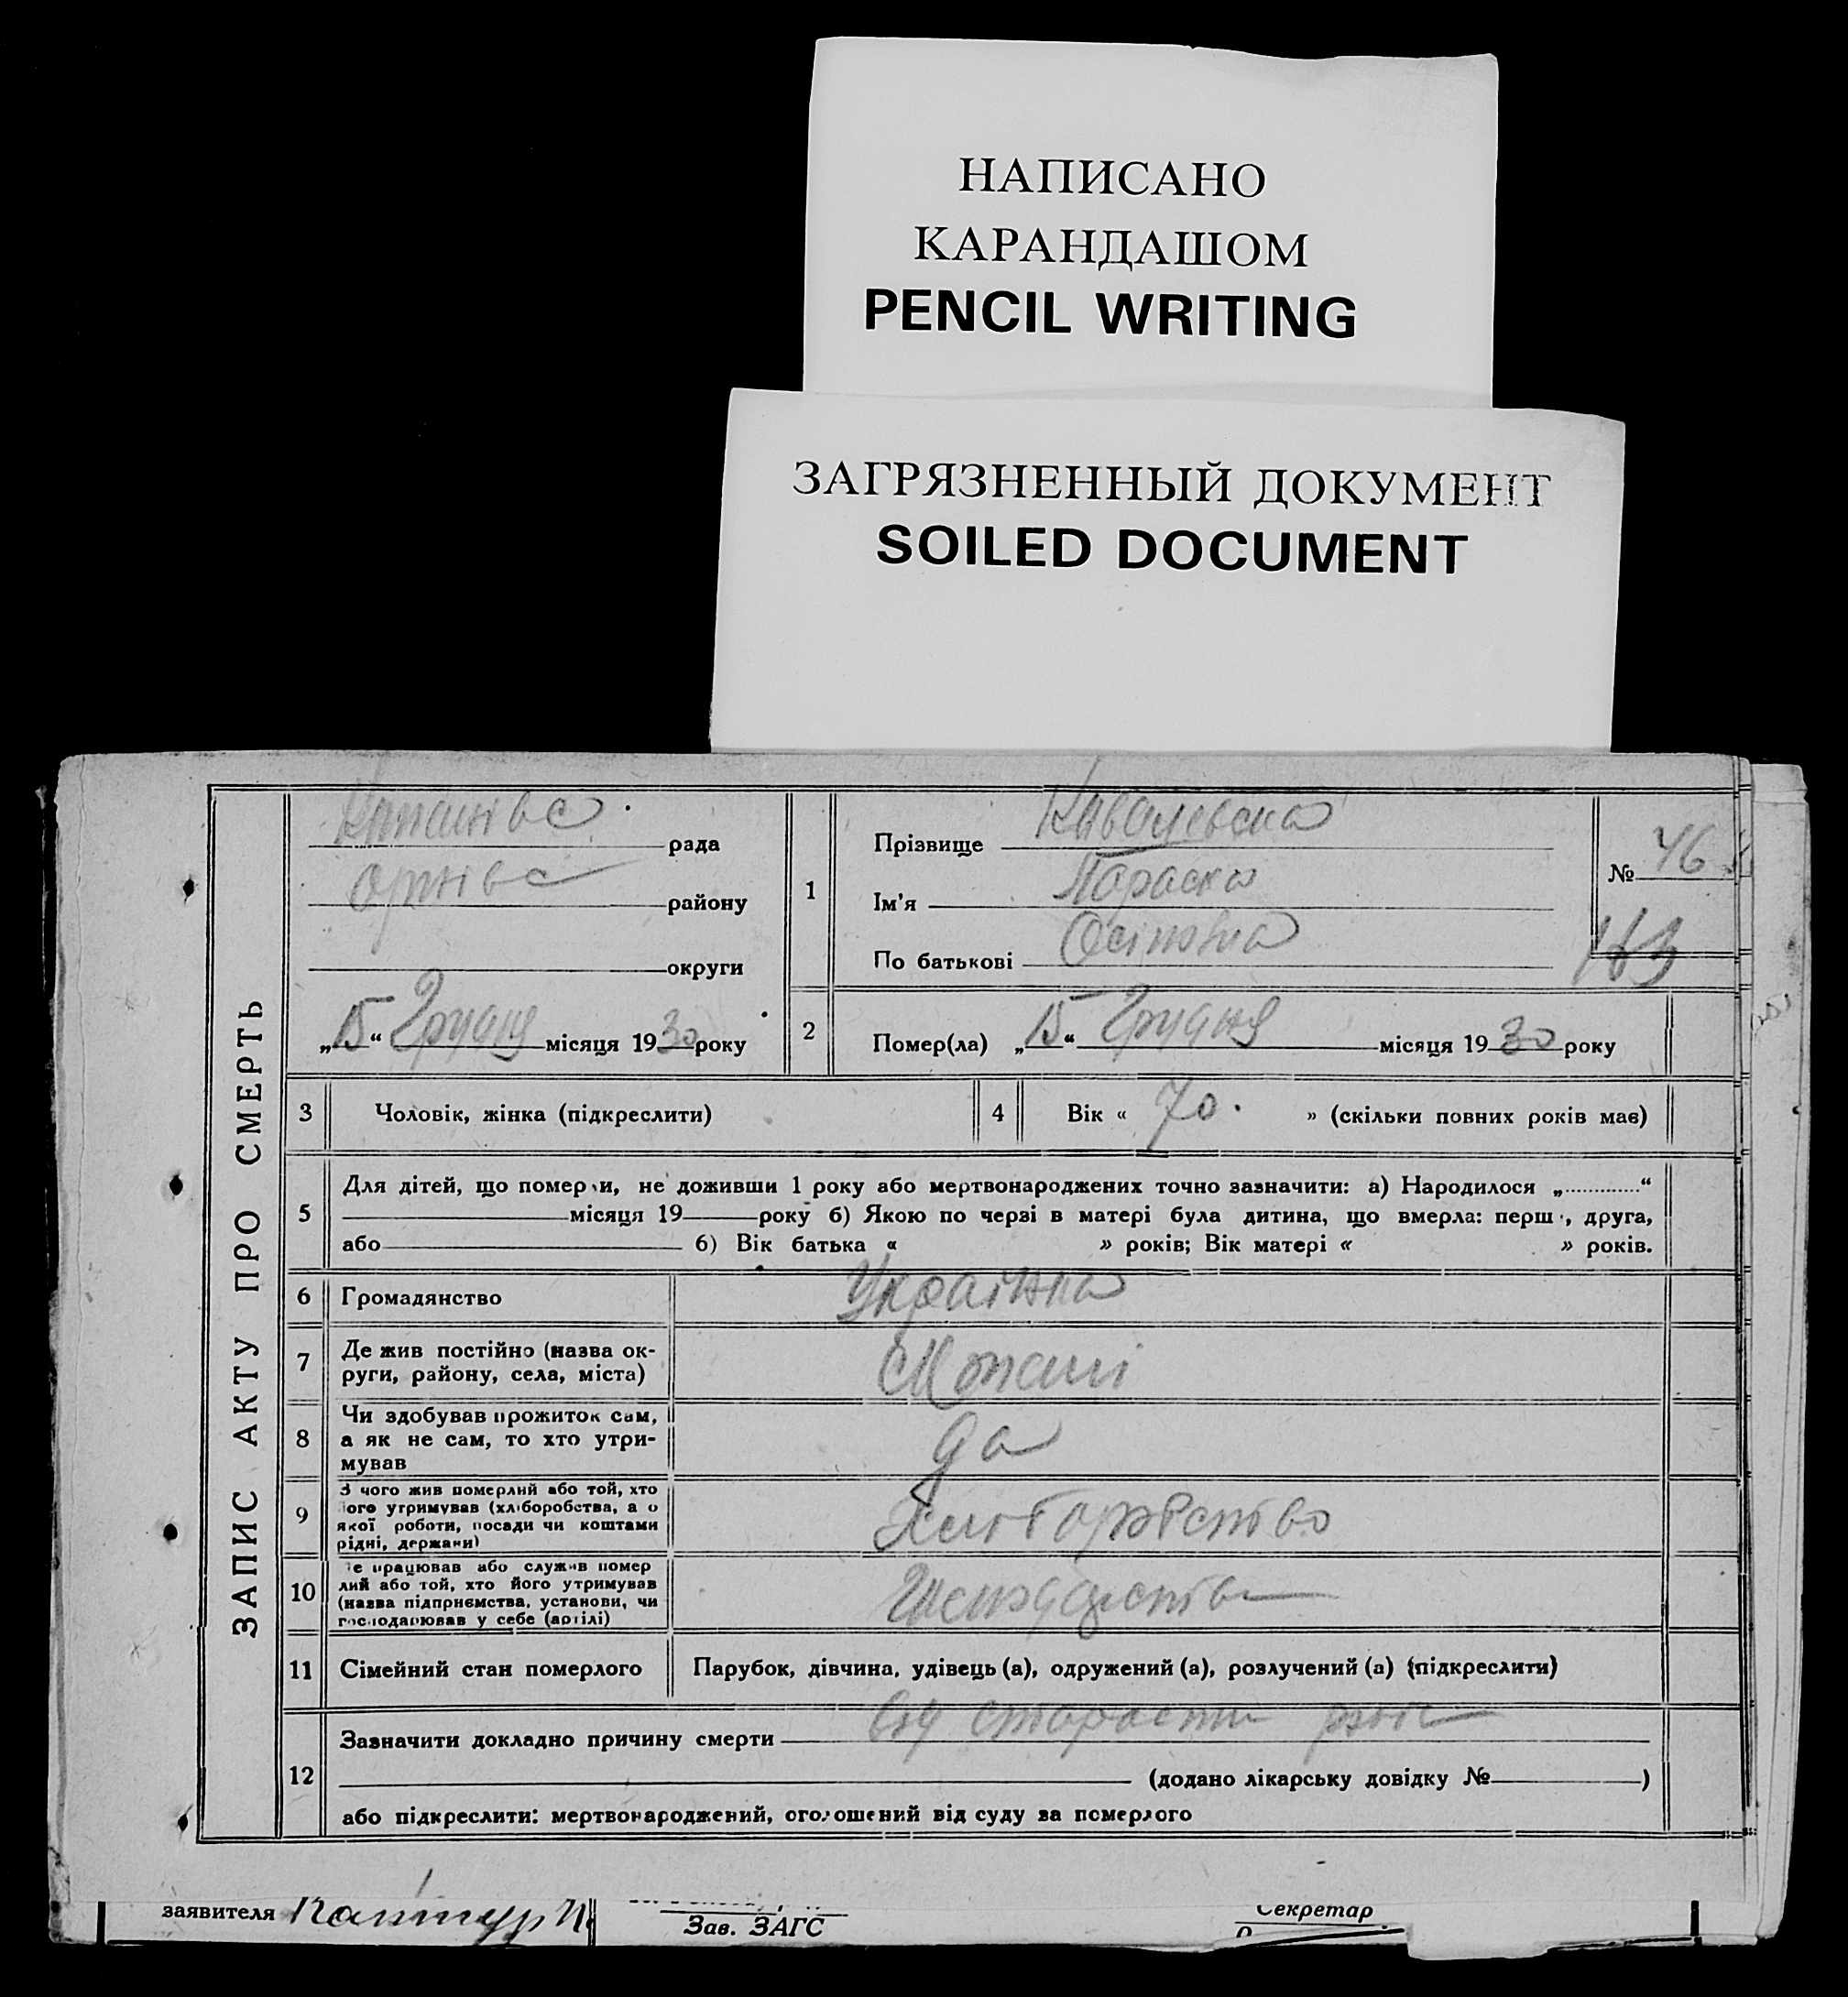 НАПИСАНО
КАРАНДАШОМ
PENCIL WRITING
ЗАГРЯЗНЕННЫЙ ДОКУМЕНТ
SOILED DOCUMENT
ЗАПИС АКТУ ПРО СМЕРТЬ
рада
району
округи
„15“ Грудня місяця 1930 року
1
Прізвище
Ім'я Параска
По батькові Осіповна
№ 46
2
Помер(ла) „15“ Грудня місяця 1930 року
3 Чоловік, жінка (підкреслити)
4 Вік « 70. » (скільки повних років має)
5
Для дітей, що померли, не доживши 1 року або мертвонароджених точно зазначити: а) Народилося „ “
місяця 19 року б) Якою по черзі в матері була дитина, що вмерла: перш , друга,
або б) Вік батька « » років; Вік матері « » років.
6 Громадянство Українка
7
Де жив постійно (назва ок-
руги, району, села, міста)
8
Чи здобував прожиток сам,
а як не сам, то хто утри-
мував
да
9
З чого жив померлий або той, хто
його утримував (хліборобства, а о
якої роботи, посади чи коштами
рідні, держави)
10
е працював або служив помер
лий або той, хто його утримував
(назва підприємства, установи, чи
господарював у себе (артілі)
11 Сімейний стан померлого Парубок, дівчина, удівець (а), одружений (а), розлучений (а) (підкреслити)
12
Зазначити докладно причину смерти від старости
(додано лікарську довідку № )
або підкреслити: мертвонароджений, оголошений від суду за померлого
заявителя
Зав. ЗАГС
Секретар